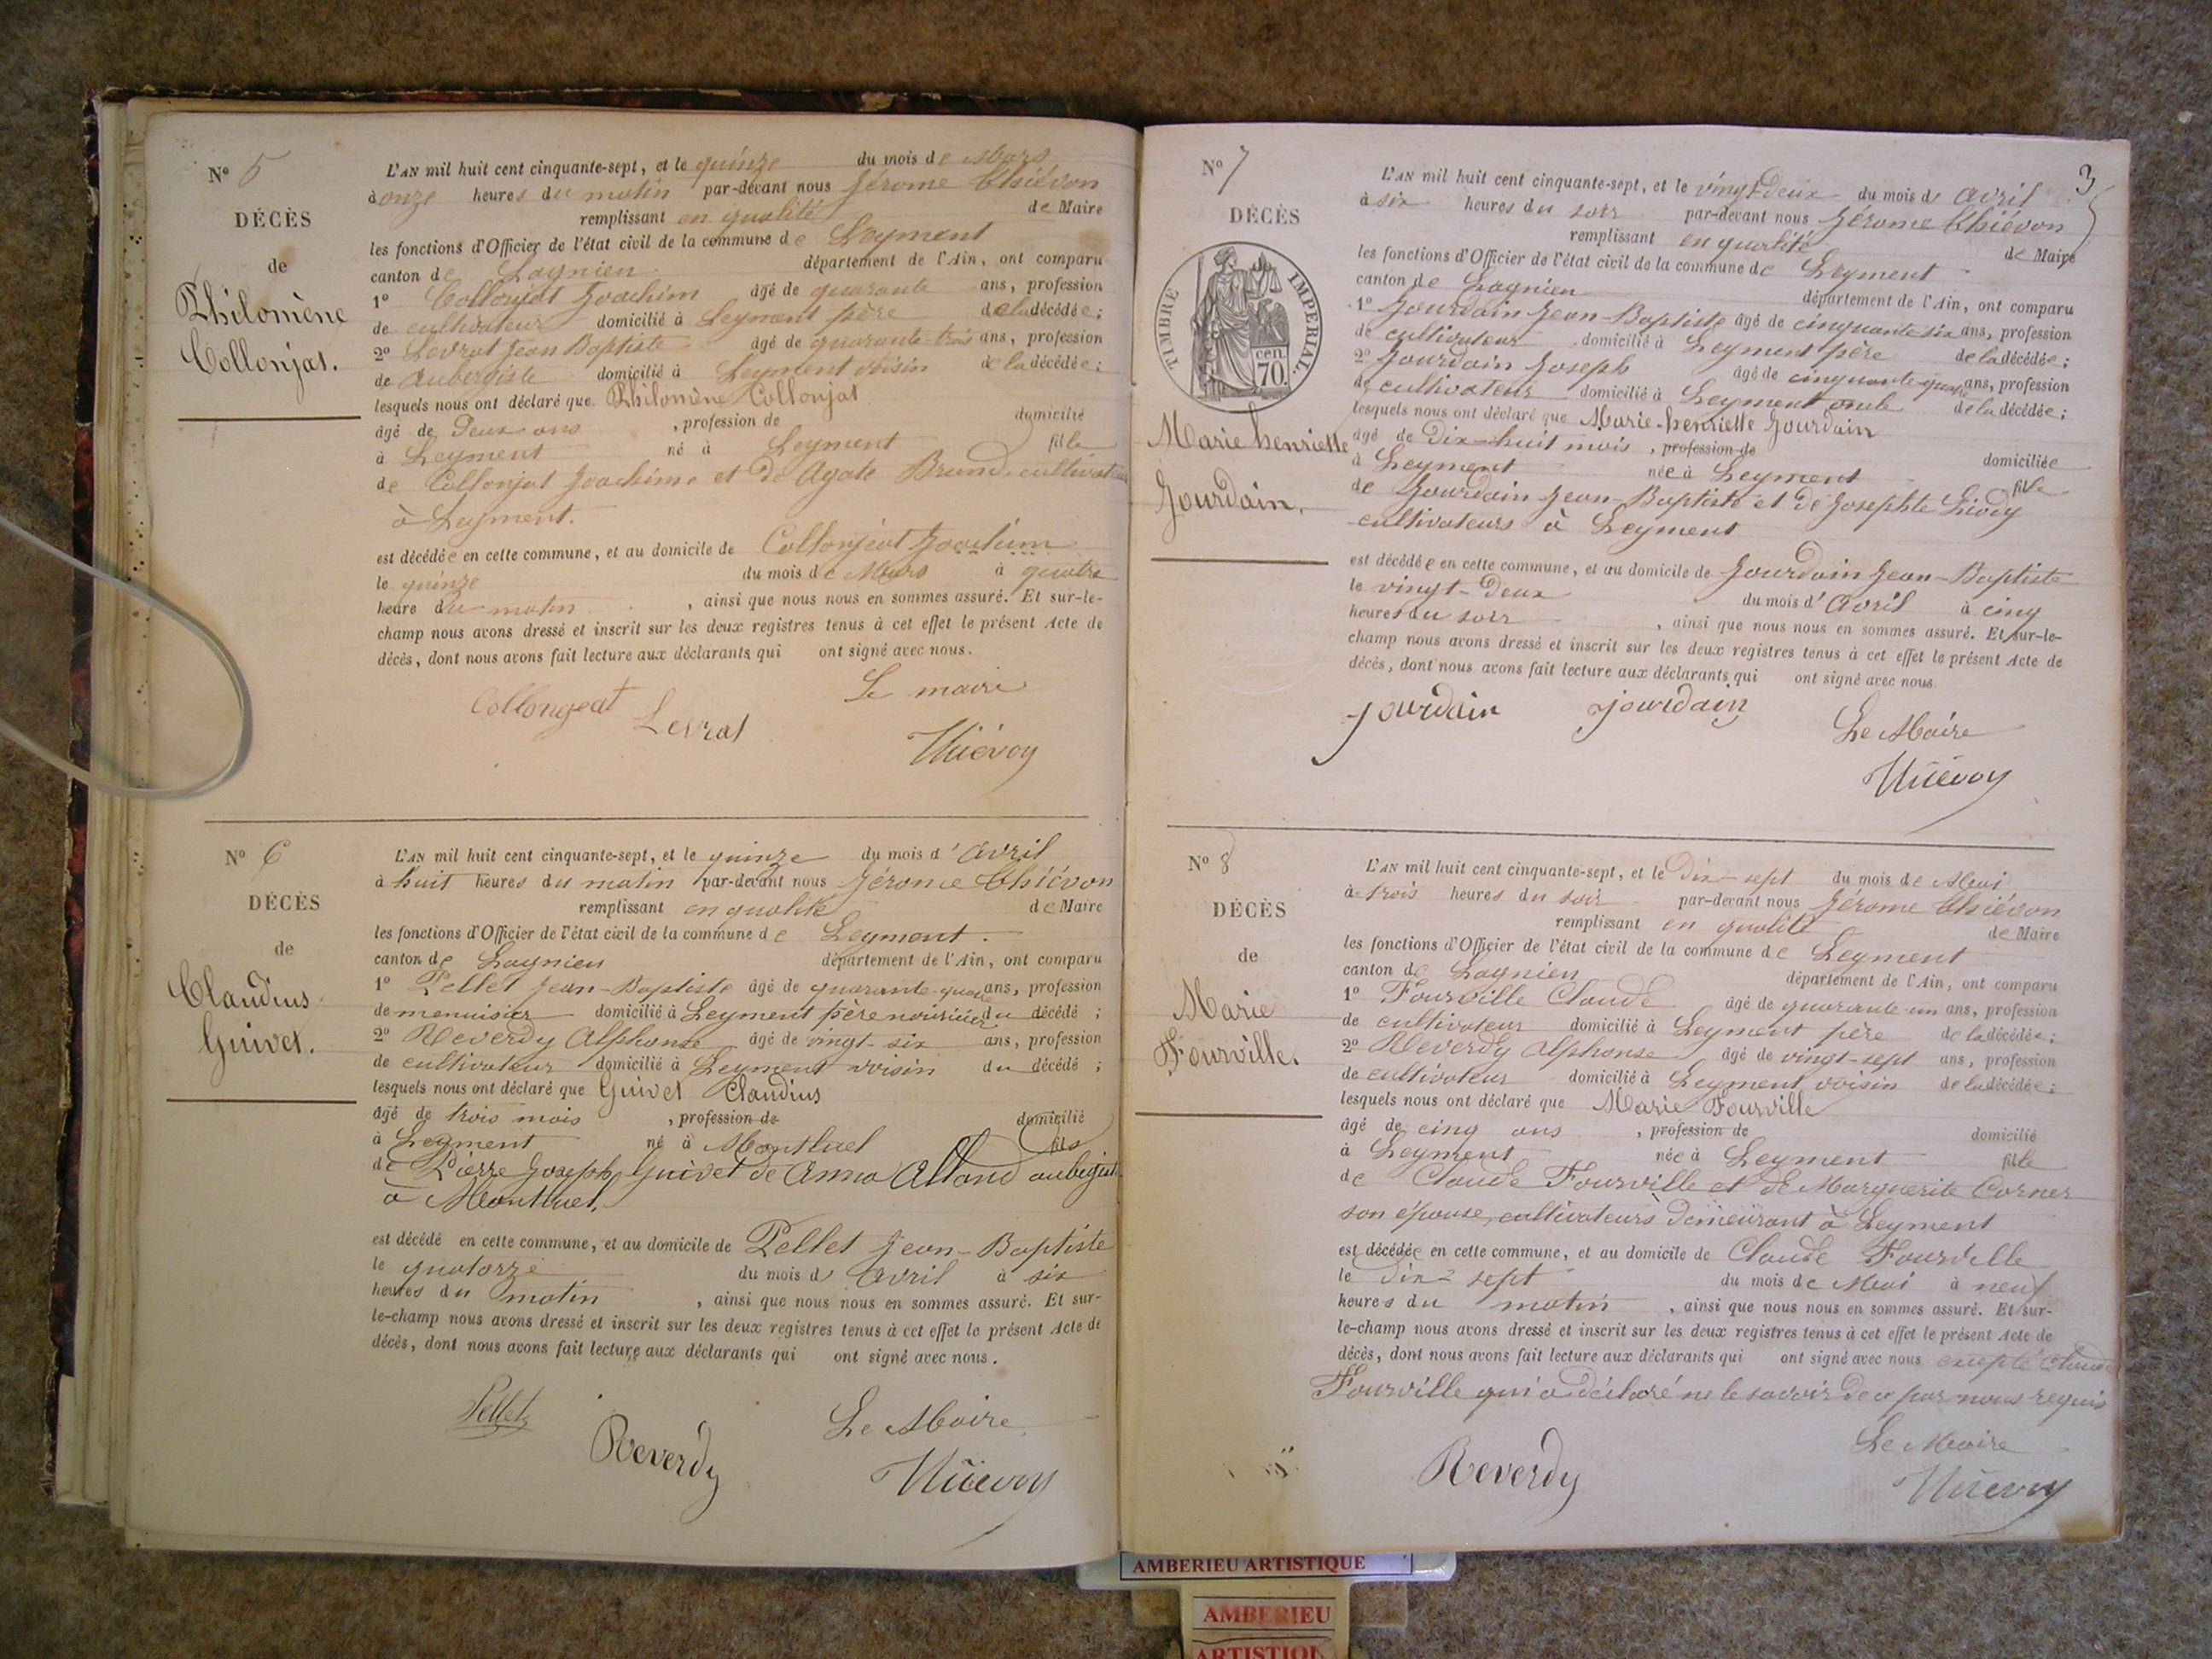 N° 5
DÉCÈS
de
Philomène
Collonjat.
L'AN mil huit cent cinquante-sept, et le quinze du mois de Mars
à onze heures du matin par-devant nous Jérome Thiévon
remplissant en qualité de Maire
les fonctions d'Officier de l'état civil de la commune de Leyment
canton de Lagnieu département de l'Ain, ont comparu
1° Collonjat Joachim âgé de quarante ans, profession
de cultivateur domicilié à Leyment père de la décédée;
2° Levrat Jean Baptiste âgé de quarante-trois ans, profession
de Aubergiste domicilié à Leyment voisin de la décédée;
lesquels nous ont déclaré que Philomène Collonjat
âgé de Deux ans , profession de domicilié
à Leyment né à Leyment fille
de Collonjat Joachim et de Agate Brund, cultivateurs
à Leyment.
est décédée en cette commune, et au domicile de Collonjeat Joachim
le quinze du mois de Mars à quatre
heure du matin , ainsi que nous nous en sommes assuré. Et sur-le-
champ nous avons dressé et inscrit sur les deux registres tenus à cet effet le présent Acte de
décès, dont nous avons fait lecture aux déclarants qui ont signé avec nous.
Le maire
Collongeat Levrat
N° 6
DÉCÈS
de
Claudius
Guivet.
L'AN mil huit cent cinquante-sept, et le quinze du mois d'Avril
à huit heures du matin par-devant nous Jérome Thiévon
remplissant en qualité de Maire
les fonctions d'Officier de l'état civil de la commune de Leyment.
canton de Lagnieu département de l'Ain, ont comparu
1° Pellet Jean-Baptiste âgé de quarante-quatre ans, profession
de menuisier domicilié à Leyment père nouricier du décédé;
2° Reverdy Alphonse âgé de vingt-six ans, profession
de cultivateur domicilié à Leyment voisin du décédé;
lesquels nous ont déclaré que Guivet Claudius
âgé de trois mois , profession de domicilié
à Leyment né à Montluel fils
de Pierre Joseph Guivet de Anna Alland
à Montluel.
est décédé en cette commune, et au domicile de Pellet Jean-Baptiste
le quatorze du mois d'Avril à six
heures du matin , ainsi que nous nous en sommes assuré. Et sur-
le-champ nous avons dressé et inscrit sur les deux registres tenus à cet effet le présent Acte de
décès, dont nous avons fait lecture aux déclarants qui ont signé avec nous.
Pellet Reverdy Le Maire
N° 7
3
DÉCÈS
TIMBRE IMPÉRIAL.
cen.
70.
Marie henriette
Jourdain.
L'AN mil huit cent cinquante-sept, et le vingt-deux du mois d'Avril
à six heures du soir par-devant nous Jérome Thiévon
remplissant en qualité de Maire
les fonctions d'Officier de l'état civil de la commune de Leyment
canton de Lagnieu département de l'Ain, ont comparu
1° Jourdain Jean-Baptiste âgé de cinquante six ans, profession
de cultivateur domicilié à Leyment père de la décédée;
2° Jourdain Joseph âgé de cinquante-quatre ans, profession
de cultivateur domicilié à Leyment oncle de la décédée;
lesquels nous ont déclaré que Marie-henriette Jourdain
âgé de Dix-huit mois , profession de
à Leyment née à Leyment domiciliée
fille
de Jourdain Jean-Baptiste et de Josephte
cultivateurs à Leyment
est décédée en cette commune, et au domicile de Jourdain Jean-Baptiste
le vingt-Deux du mois d'Avril à cinq
heures du soir , ainsi que nous nous en sommes assuré. Et sur-le-
champ nous avons dressé et inscrit sur les deux registres tenus à cet effet le présent Acte de
décès, dont nous avons fait lecture aux déclarants qui ont signé avec nous.
jourdain jourdain
Le Maire
N° 8
DÉCÈS
de
Marie
Fourville.
L'AN mil huit cent cinquante-sept, et le Dix-sept du mois de Mai
à trois heures du soir par-devant nous Jérome Thiévon
remplissant en qualité de Maire
les fonctions d'Officier de l'état civil de la commune de Leyment
canton de Lagnieu département de l'Ain, ont comparu
1° Fourville Claude âgé de quarante-un ans, profession
de cultivateur domicilié à Leyment père de la décédée;
2° Reverdy Alphonse âgé de vingt-sept ans, profession
de cultivateur domicilié à Leyment, voisin de la décédée;
lesquels nous ont déclaré que Marie Fourville
âgé de cinq ans , profession de domicilié
à Leyment née à Leyment fille
de Claude Fourville et de Marguerite Corner
son épouse, cultivateurs demeurant à Leyment
est décédée en cette commune, et au domicile de Claude Fourville
le Dix-sept du mois de Mai à neuf
heures du matin , ainsi que nous nous en sommes assuré. Et sur-
le-champ nous avons dressé et inscrit sur les deux registres tenus à cet effet le présent Acte de
décès, dont nous avons fait lecture aux déclarants qui ont signé avec nous excepté Claude
Fourville qui a déclaré ne le savoir de ce par nous requis
Le Maire
Reverdy
AMBERIEU ARTISTIQUE
AMBERIEU
ARTISTIQU